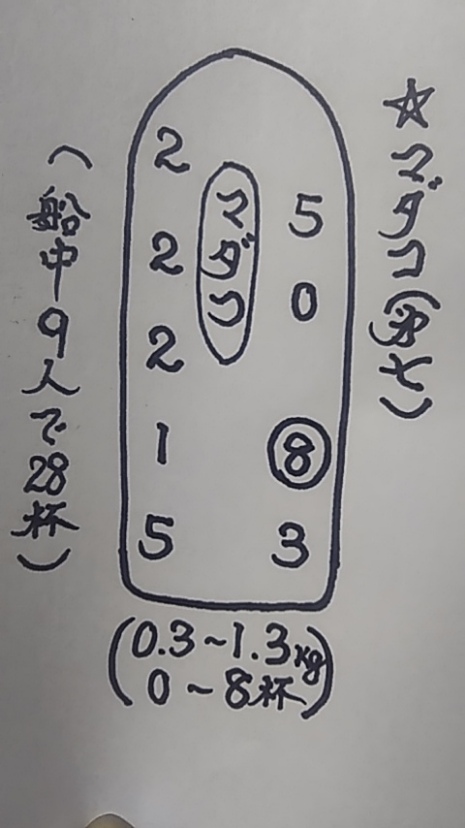 ☆マダコ
マダコ
2
5
2
0
2
1
8
5
3
(0.3~1.3kg
0~8杯)
(船中9人で28杯)